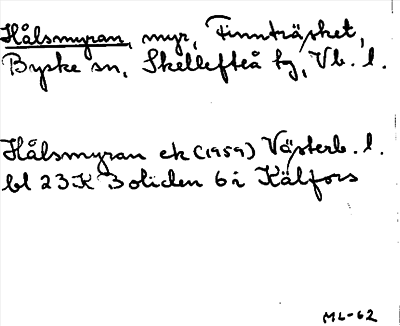 Hålsmyran, myr, Finnträsket,
Byske sn, Skellefteå tg, Vb. l.
Hålsmyran ek (1959) Västerb. l.
bl 23K Boliden 6i Kålfors
ML-62